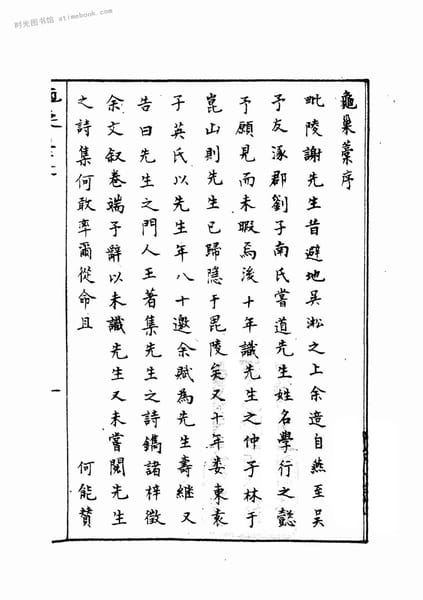 时光图书馆 atimebook.com
龜巢藁序
毗陵謝先生昔避地吴淞之上余造自燕至吴
予友涿郡劉子南氏嘗道先生姓名學行之懿
予願見而未暇焉後十年識先生之仲子林于
崑山則先生已歸隐于毘陵矣又十年婁東袁
子英氏以先生年八十邀余賦為先生壽継又
告曰先生之門人王著集先生之詩鐫諸梓徵
余文叙卷端予辭以未識先生又未嘗閲先生
之詩集何敢率爾從命且 何能賛
一